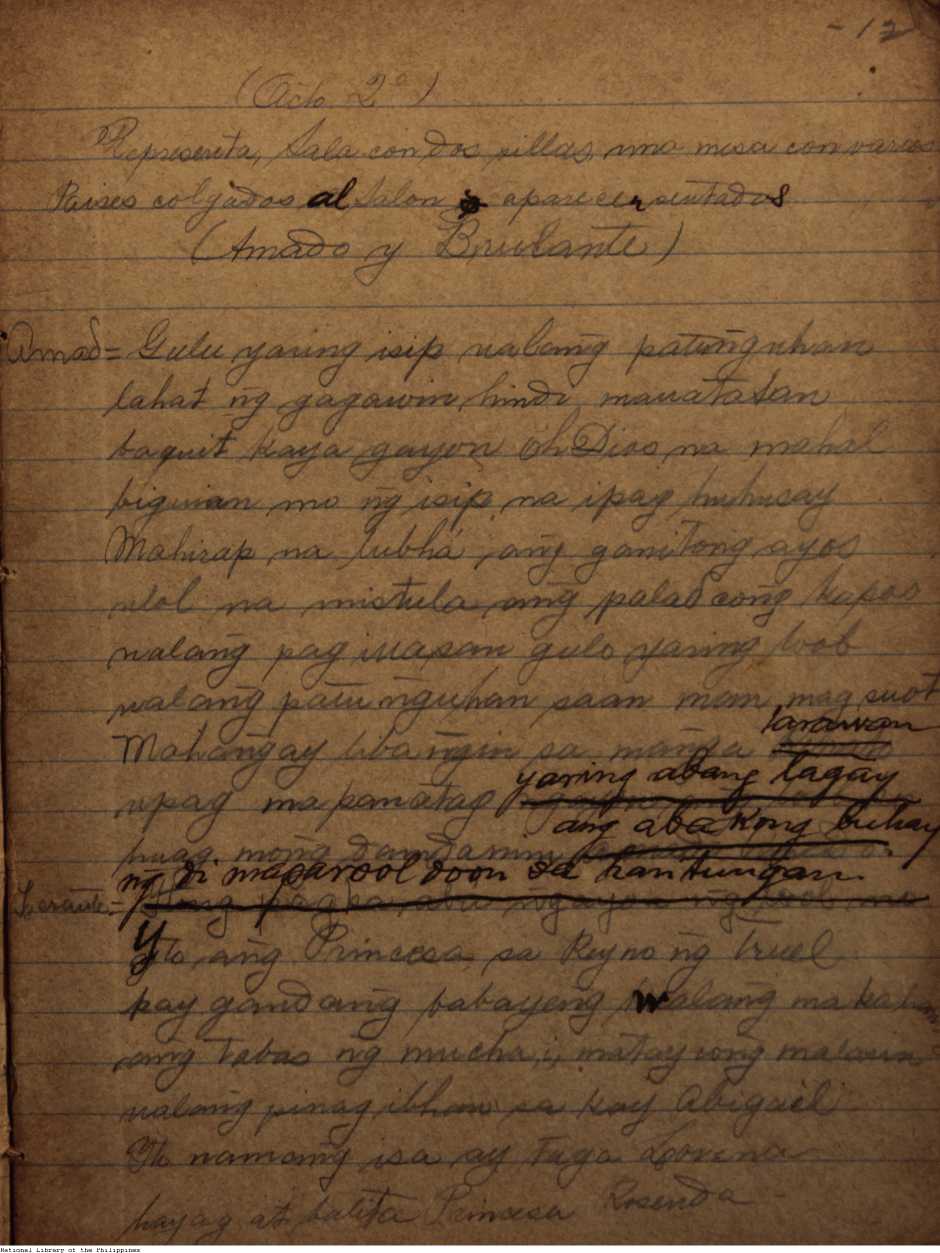 -12
(Acto 2º)
Representa, Sala con dos sillas, una mesa con varios
Paises colgados al Salon aparecen sentados
(Amado y Brulante)
Amad= Gulu yaring isip ualang patunguhan
lahat ng gagawin hindi mauatasan
baquit kaya gayon Oh Dios na mahal
biguian mo ng isip na ipag huhusay
Mahirap na lubha ang ganitong ayos
ulol na mistula ang palad cong kapos
ualang pag iuasan gulo yaring loob
ualang patu nguhan saan man mag suot
Mahangay liba ngin sa manga larawan
upag mapanatag yaring abang lagay
huag mong damdamin ang aba kong buhay
ng di maparool doon sa hantungan
Yto ang Princesa sa Reyno ng
kay gandang babayeng walang
ang tabas ng mucha, matay iong malasin
ualang pinag ibhan sa kay Abigael
Yto namang isa ay taga Lorena
hayag at balita Princesa Rosenda